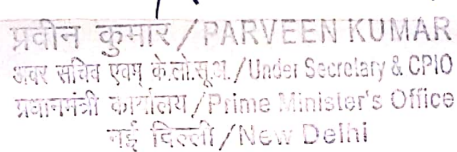 प्रवीन कुमार/PARVEEN KUMAR
अवर सचिव एवम् के.लो.सू.अ./Under Secretary & CPIO
प्रधानमंत्री कार्यालय/Prime Minister's Office
नई दिल्ली/New Delhi